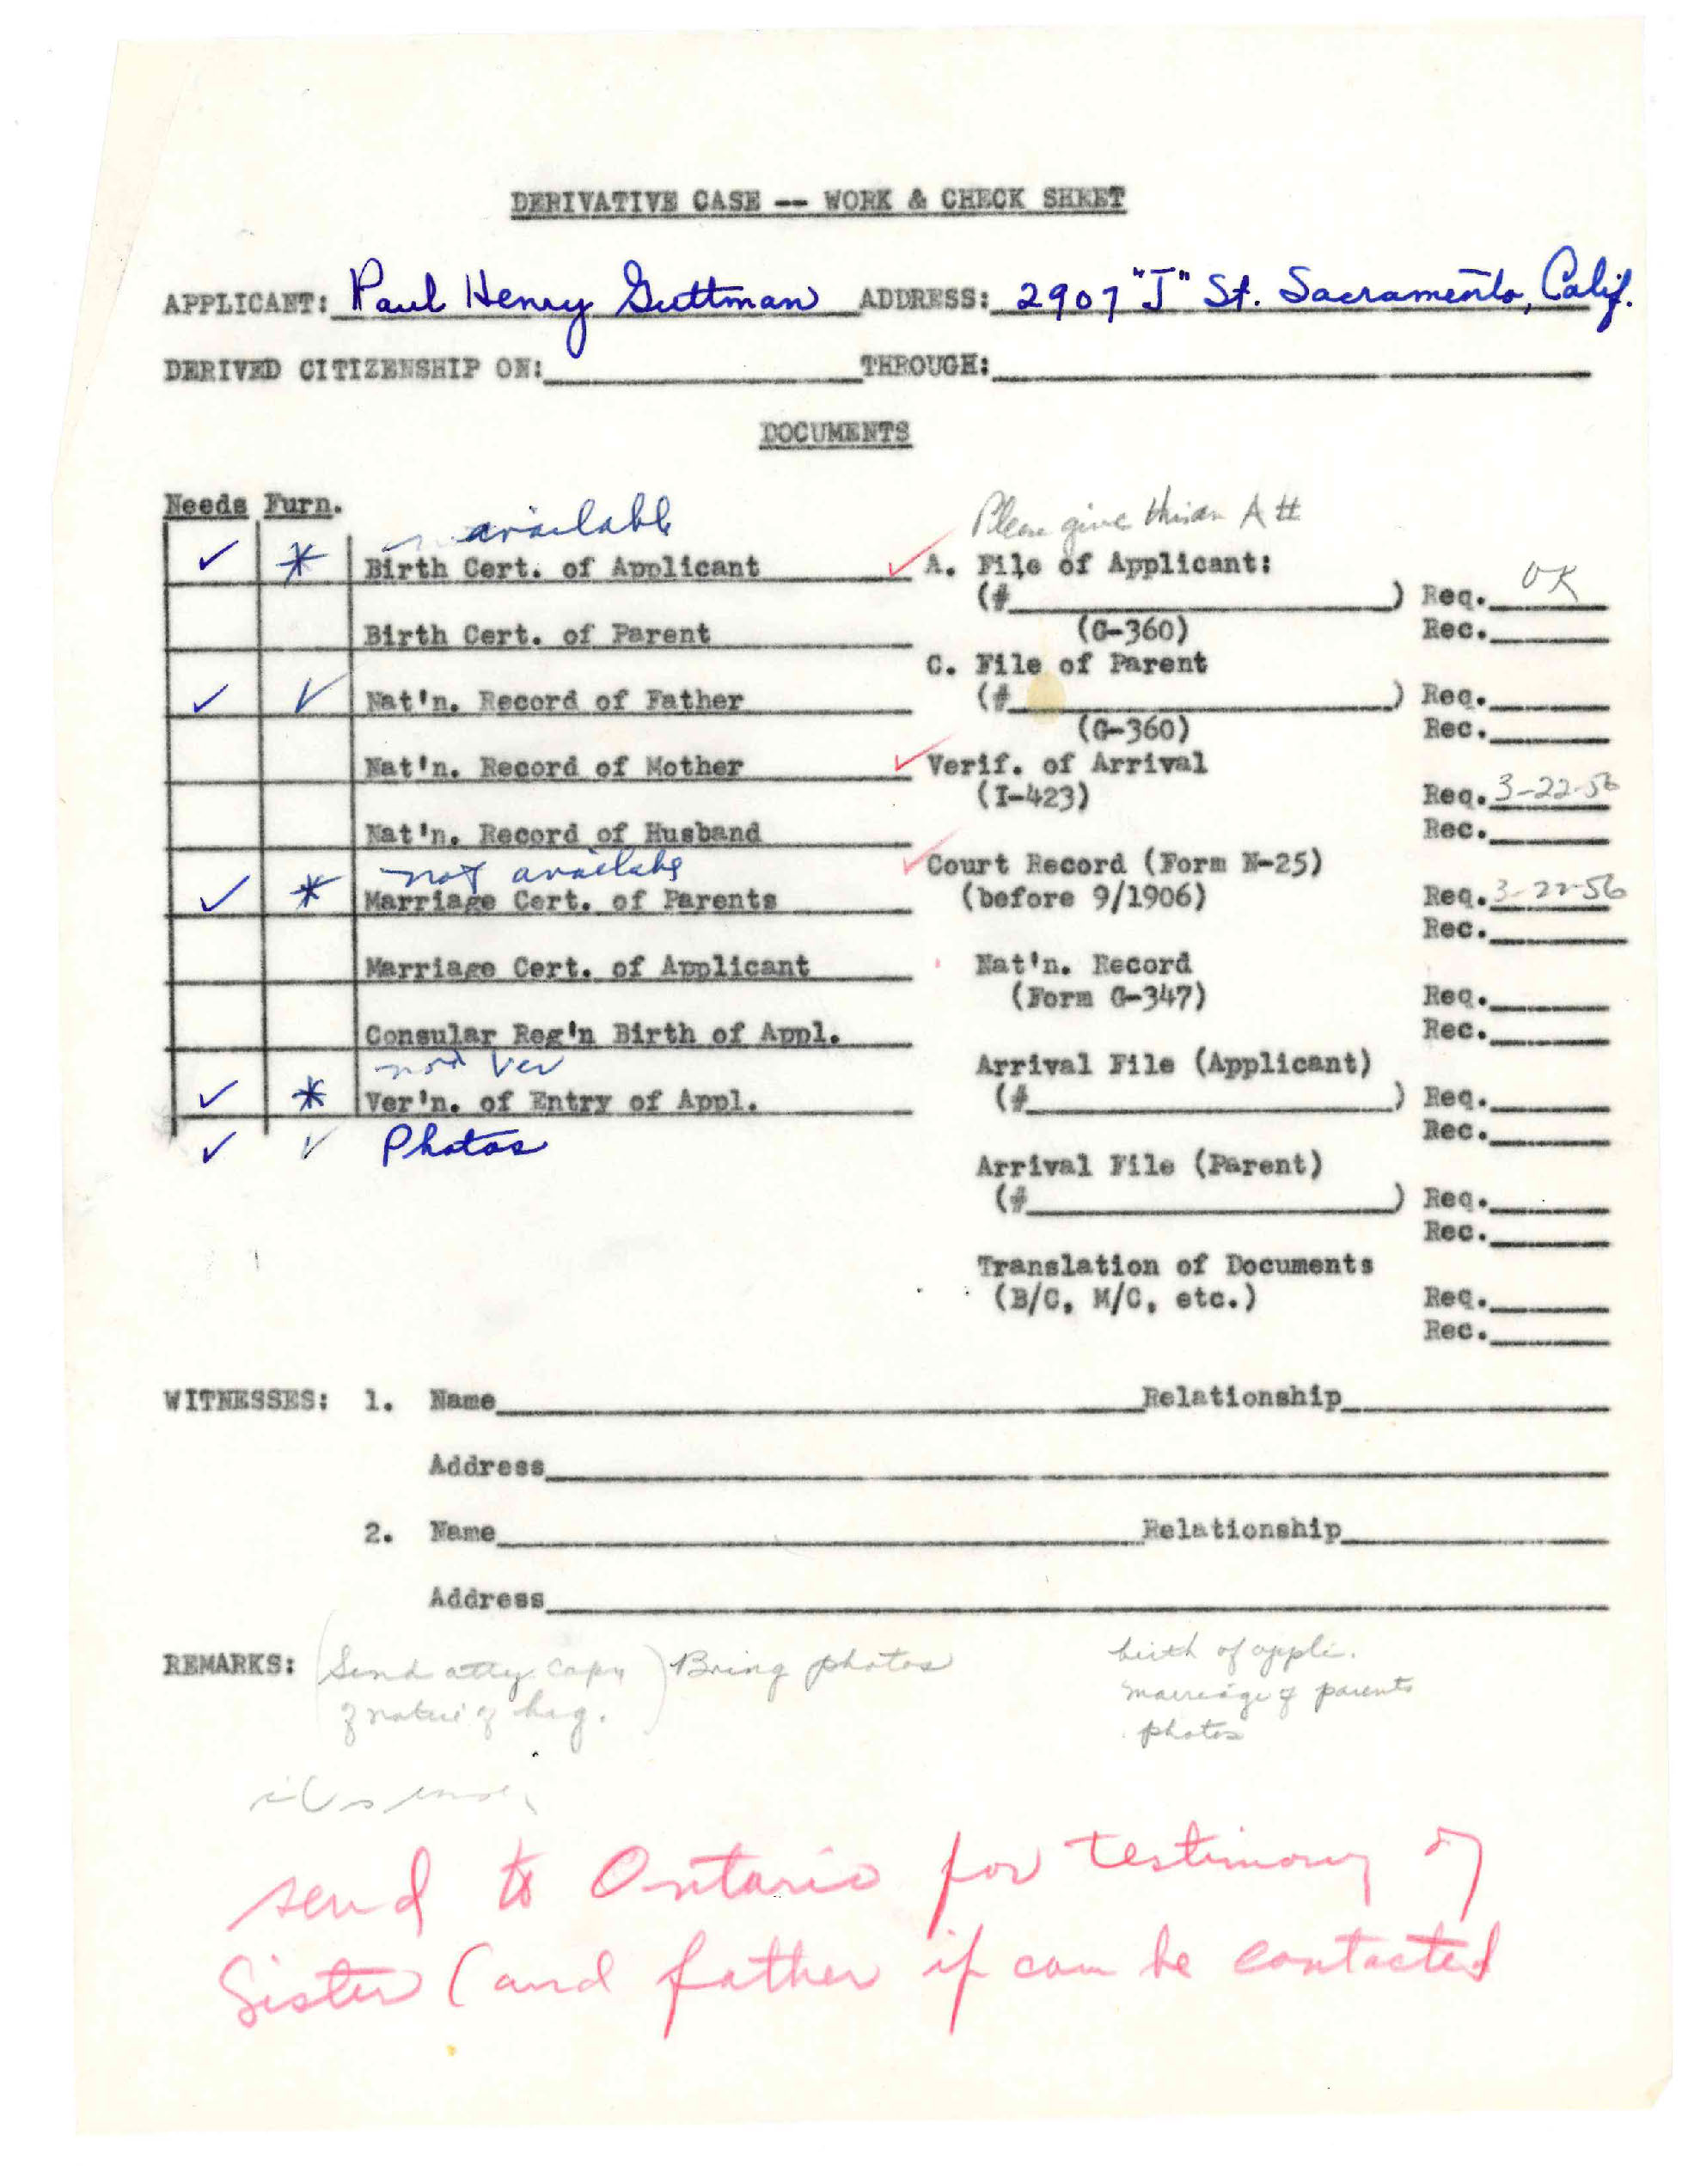 DERIVATIVE CASE -- WORK & CHECK SHEET
APPLICANT: Paul Henry Guttman ADDRESS: 2907 "J" St. Sacramento, Calif.
DERIVED CITIZENSHIP ON: THROUGH:
DOCUMENTS
Needs Furn.
available
✓ * Birth Cert. of Applicant
Birth Cert. of Parent
✓ ✓ Nat'n. Record of Father
Nat'n. Record of Mother
Nat'n. Record of Husband
not available
✓ * Marriage Cert. of Parents
Marriage Cert. of Applicant
Consular Reg'n Birth of Appl.
not Ver
✓ * Ver'n. of Entry of Appl.
✓ ✓ Photos
Please give this an A #
✓ A. File of Applicant:
(# ) Req. OK
(G-360) Rec.
C. File of Parent
(# ) Req.
(G-360) Rec.
✓ Verif. of Arrival
(I-423) Req. 3-22-56
Rec.
✓ Court Record (Form N-25)
(before 9/1906) Req. 3-22-56
Rec.
Nat'n. Record
(Form G-347) Req.
Rec.
Arrival File (Applicant)
(# ) Req.
Rec.
Arrival File (Parent)
(# ) Req.
Rec.
Translation of Documents
(B/C, M/C, etc.) Req.
Rec.
WITNESSES: 1. Name Relationship
Address
2. Name Relationship
Address
REMARKS: (Send atty copy of notice of hrg.) Bring photos
birth of appli.
marriage of parents
photos
send to Ontario for testimony of
Sister (and father if can be contacted